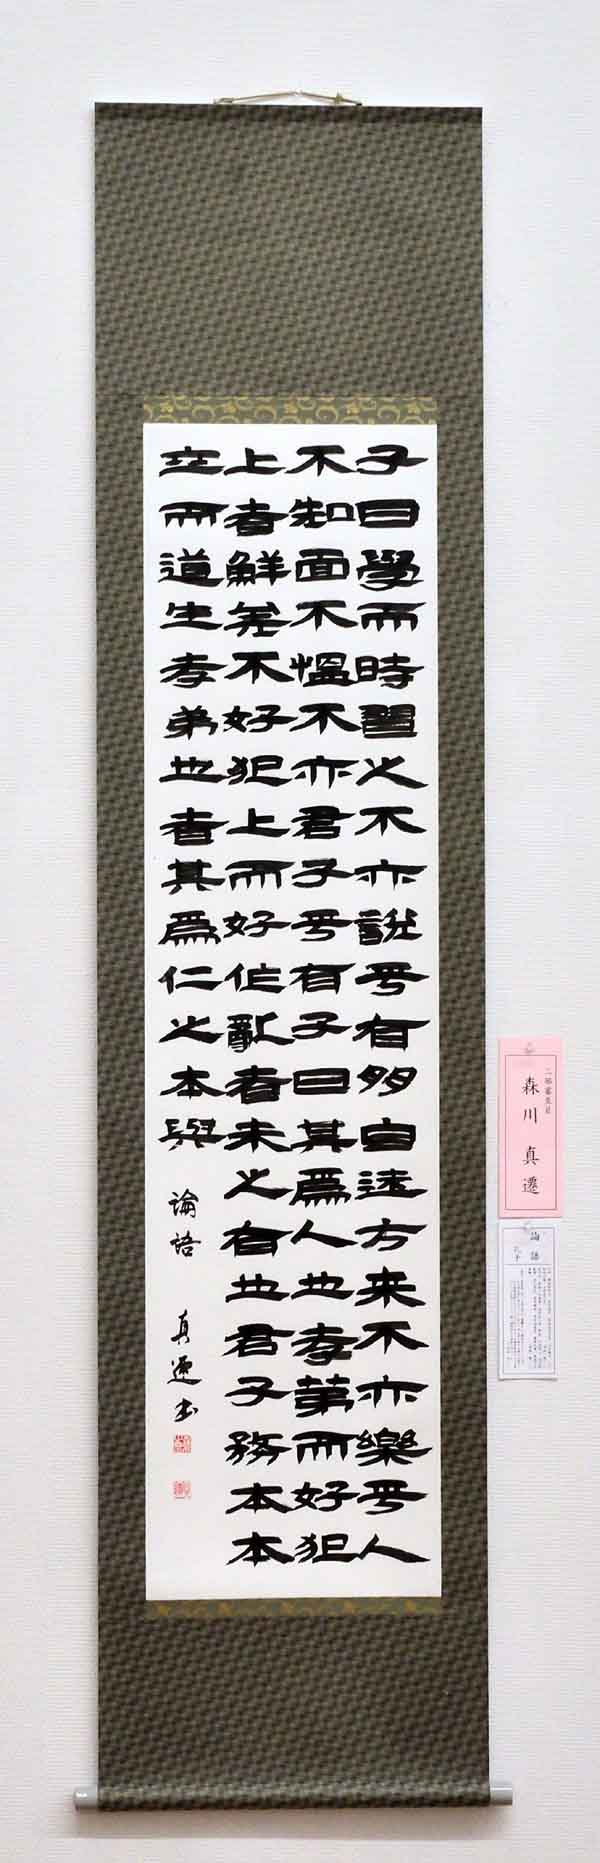 子曰學而時習之不亦說乎有朋自遠方来不亦樂乎人
不知面不慍不亦君子乎有子曰其爲人也孝弟而好犯
上者鮮矣不好犯上而好作亂者未之有也君子務本本
立而道生孝弟也者其爲仁之本與 論語 真遷書
二部審査員
森川 真遷
論語
孔子